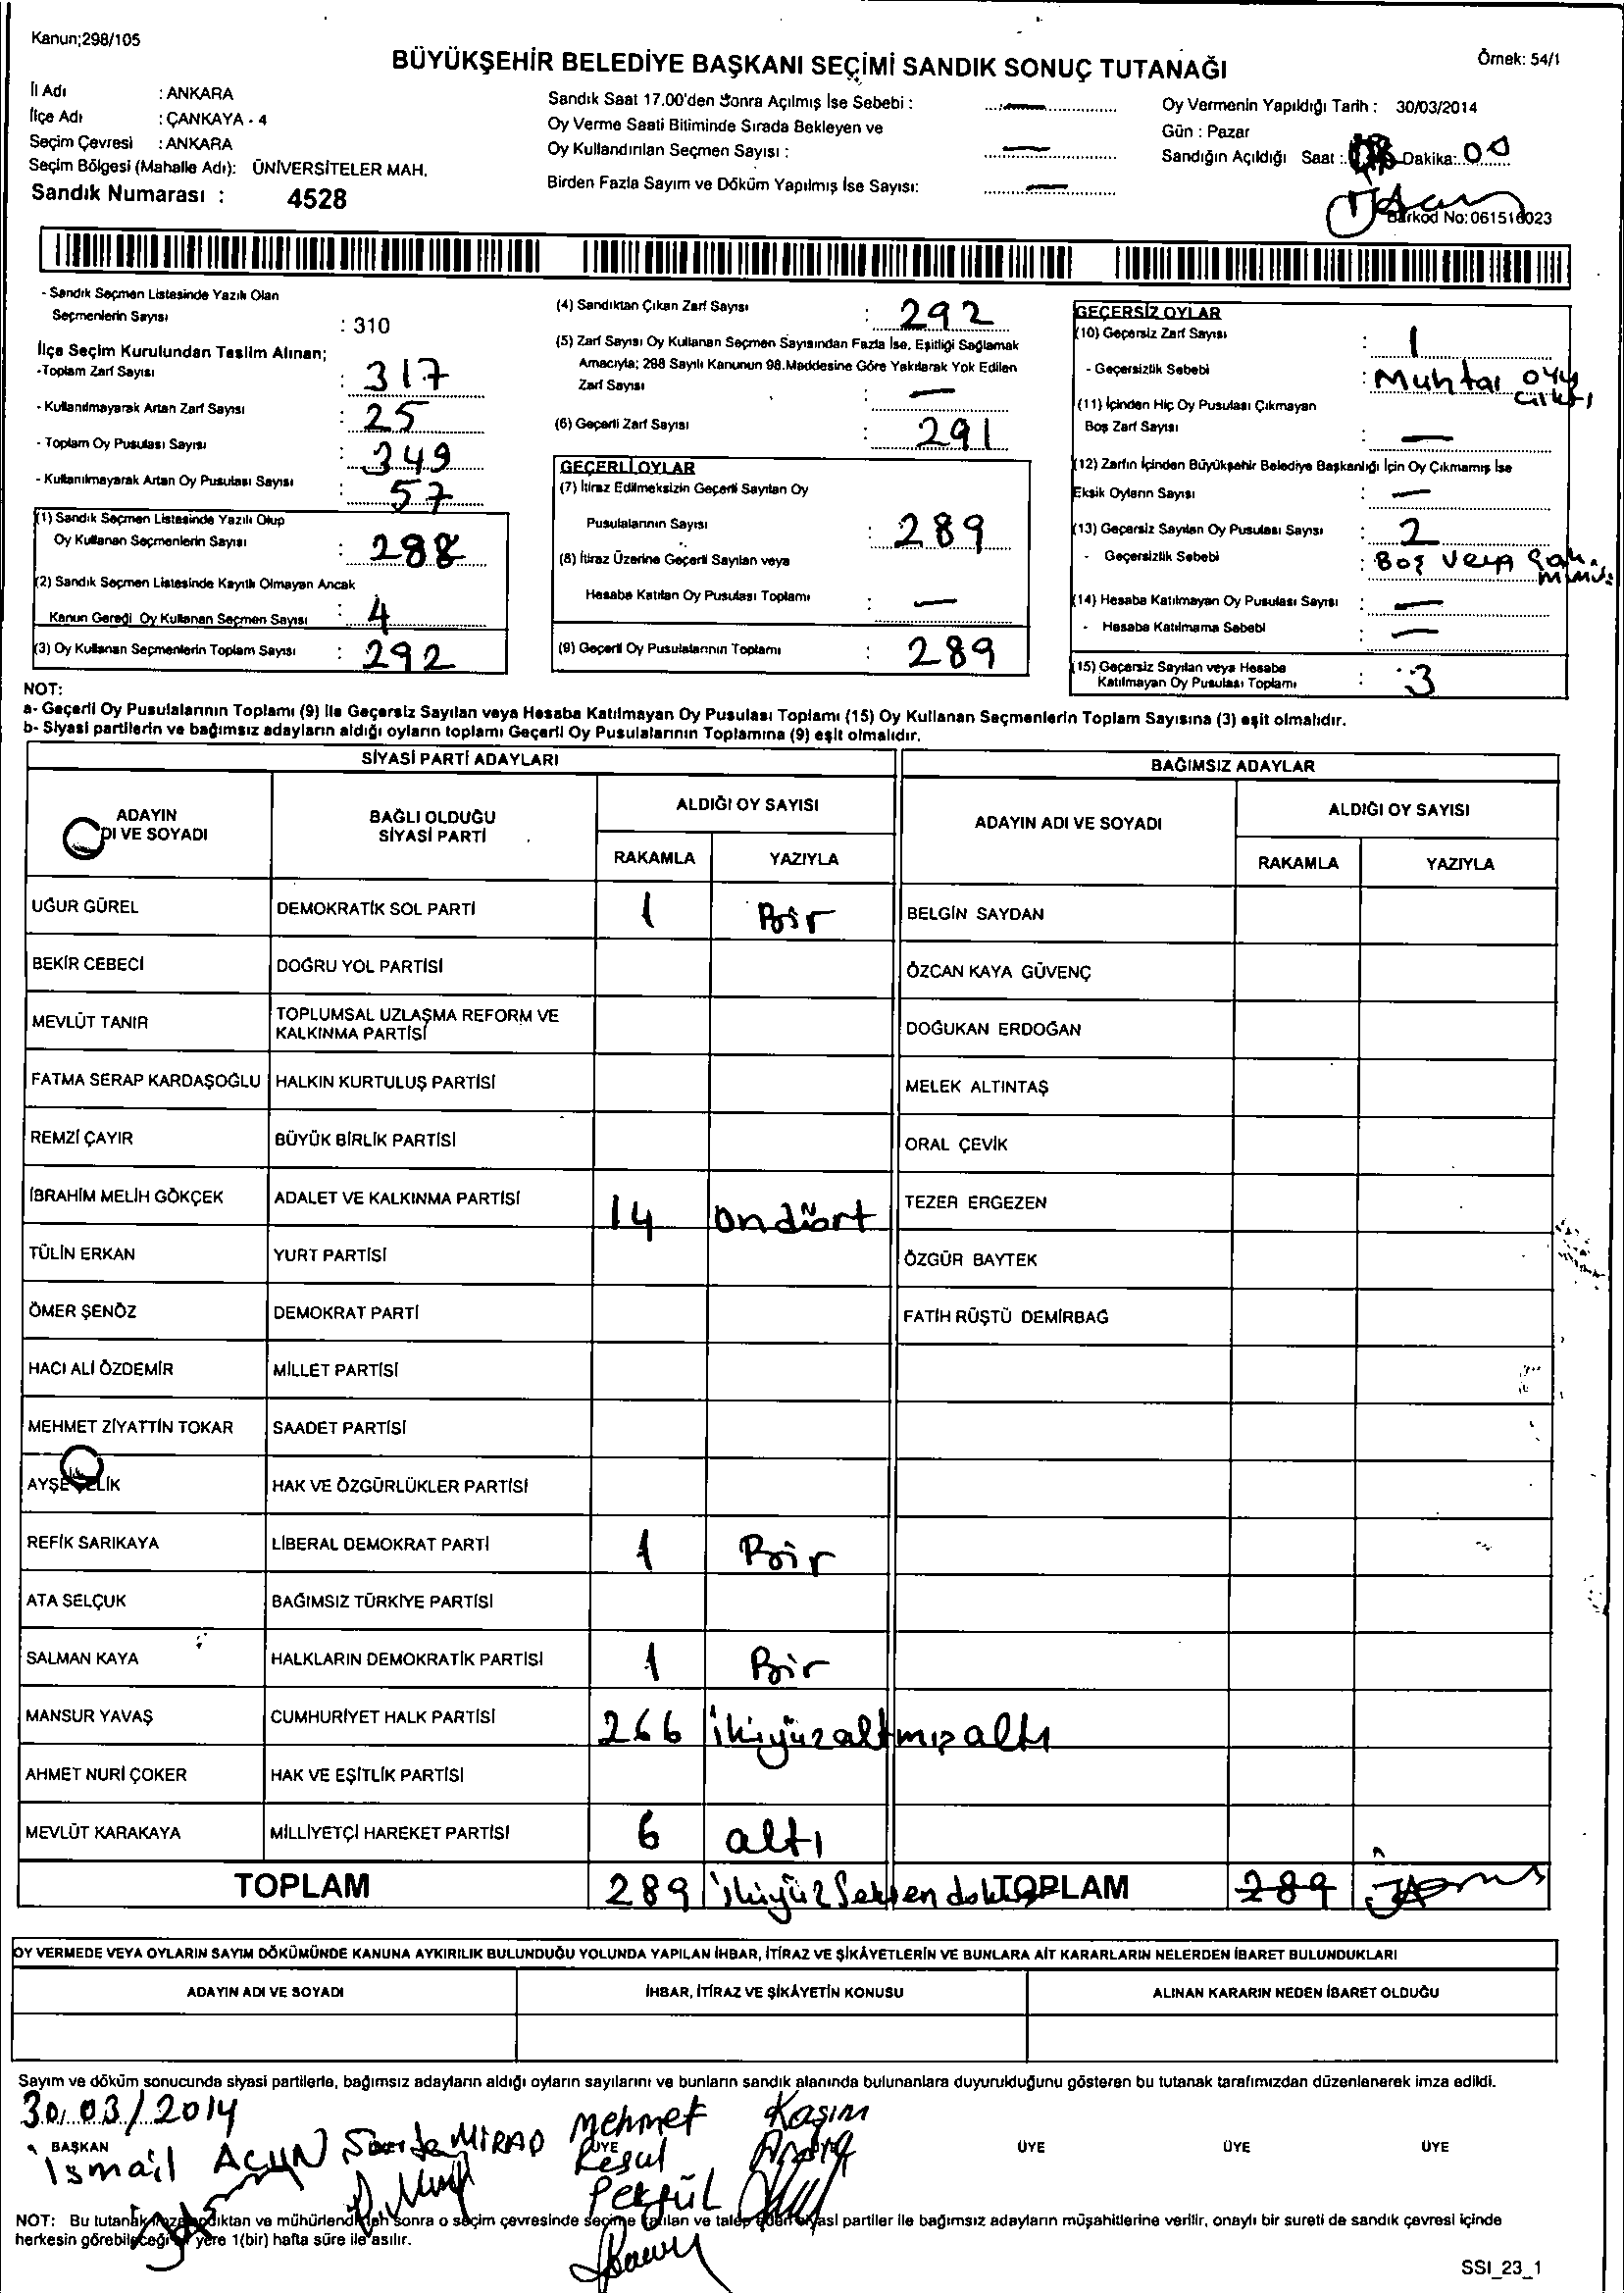 Kanun;298/105
Örnek: 54/1
BÜYÜKŞEHİR BELEDİYE BAŞKANI SEÇİMİ SANDIK SONUÇ TUTANAĞI
İl Adı : ANKARA
İlçe Adı : ÇANKAYA - 4
Seçim Çevresi : ANKARA
Seçim Bölgesi (Mahalle Adı): ÜNİVERSİTELER MAH.
Sandık Numarası : 4528
Sandık Saat 17.00'den Sonra Açılmış İse Sebebi : —
Oy Verme Saati Bitiminde Sırada Bekleyen ve
Oy Kullandırılan Seçmen Sayısı : —
Birden Fazla Sayım ve Döküm Yapılmış İse Sayısı: —
Oy Vermenin Yapıldığı Tarih : 30/03/2014
Gün : Pazar
Sandığın Açıldığı Saat : Dakika: 00
Barkod No: 061516023
- Sandık Seçmen Listesinde Yazılı Olan
Seçmenlerin Sayısı : 310
İlçe Seçim Kurulundan Teslim Alınan;
-Toplam Zarf Sayısı : 317
- Kullanılmayarak Artan Zarf Sayısı : 25
- Toplam Oy Pusulası Sayısı : 349
- Kullanılmayarak Artan Oy Pusulası Sayısı : 57
(1) Sandık Seçmen Listesinde Yazılı Olup
Oy Kullanan Seçmenlerin Sayısı : 288
(2) Sandık Seçmen Listesinde Kayıtlı Olmayan Ancak
Kanun Gereği Oy Kullanan Seçmen Sayısı : 4
(3) Oy Kullanan Seçmenlerin Toplam Sayısı : 292
(4) Sandıktan Çıkan Zarf Sayısı : 292
(5) Zarf Sayısı Oy Kullanan Seçmen Sayısından Fazla İse, Eşitliği Sağlamak
Amacıyla; 298 Sayılı Kanunun 98.Maddesine Göre Yakılarak Yok Edilen
Zarf Sayısı : —
(6) Geçerli Zarf Sayısı : 291
GEÇERLİ OYLAR
(7) İtiraz Edilmeksizin Geçerli Sayılan Oy
Pusulalarının Sayısı : 289
(8) İtiraz Üzerine Geçerli Sayılan veya
Hesaba Katılan Oy Pusulası Toplamı : —
(9) Geçerli Oy Pusulalarının Toplamı : 289
GEÇERSİZ OYLAR
(10) Geçersiz Zarf Sayısı : 1
- Geçersizlik Sebebi : Muhtar oyu
çıktı
(11) İçinden Hiç Oy Pusulası Çıkmayan
Boş Zarf Sayısı : —
(12) Zarfın İçinden Büyükşehir Belediye Başkanlığı İçin Oy Çıkmamış İse
Eksik Oyların Sayısı : —
(13) Geçersiz Sayılan Oy Pusulası Sayısı : 2
- Geçersizlik Sebebi : Boş veya
(14) Hesaba Katılmayan Oy Pusulası Sayısı : —
- Hesaba Katılmama Sebebi : —
(15) Geçersiz Sayılan veya Hesaba
Katılmayan Oy Pusulası Toplamı : 3
NOT:
a- Geçerli Oy Pusulalarının Toplamı (9) ile Geçersiz Sayılan veya Hesaba Katılmayan Oy Pusulası Toplamı (15) Oy Kullanan Seçmenlerin Toplam Sayısına (3) eşit olmalıdır.
b- Siyasi partilerin ve bağımsız adayların aldığı oyların toplamı Geçerli Oy Pusulalarının Toplamına (9) eşit olmalıdır.
SİYASİ PARTİ ADAYLARI
BAĞIMSIZ ADAYLAR
ADAYIN
DI VE SOYADI
BAĞLI OLDUĞU
SİYASİ PARTİ
ALDIĞI OY SAYISI
RAKAMLA YAZIYLA
ADAYIN ADI VE SOYADI
ALDIĞI OY SAYISI
RAKAMLA YAZIYLA
UĞUR GÜREL DEMOKRATİK SOL PARTİ 1 Bir BELGİN SAYDAN
BEKİR CEBECİ DOĞRU YOL PARTİSİ ÖZCAN KAYA GÜVENÇ
MEVLÜT TANIR TOPLUMSAL UZLAŞMA REFORM VE
KALKINMA PARTİSİ DOĞUKAN ERDOĞAN
FATMA SERAP KARDAŞOĞLU HALKIN KURTULUŞ PARTİSİ MELEK ALTINTAŞ
REMZİ ÇAYIR BÜYÜK BİRLİK PARTİSİ ORAL ÇEVİK
İBRAHİM MELİH GÖKÇEK ADALET VE KALKINMA PARTİSİ 14 ondört TEZER ERGEZEN
TÜLİN ERKAN YURT PARTİSİ ÖZGÜR BAYTEK
ÖMER ŞENÖZ DEMOKRAT PARTİ FATİH RÜŞTÜ DEMİRBAĞ
HACI ALİ ÖZDEMİR MİLLET PARTİSİ
MEHMET ZİYATTİN TOKAR SAADET PARTİSİ
AYŞE ÇELİK HAK VE ÖZGÜRLÜKLER PARTİSİ
REFİK SARIKAYA LİBERAL DEMOKRAT PARTİ 1 Bir
ATA SELÇUK BAĞIMSIZ TÜRKİYE PARTİSİ
SALMAN KAYA HALKLARIN DEMOKRATİK PARTİSİ 1 Bir
MANSUR YAVAŞ CUMHURİYET HALK PARTİSİ 266 ikiyüzaltmışaltı
AHMET NURİ ÇOKER HAK VE EŞİTLİK PARTİSİ
MEVLÜT KARAKAYA MİLLİYETÇİ HAREKET PARTİSİ 6 altı
TOPLAM 289 ikiyüzseksendokuz TOPLAM 289
OY VERMEDE VEYA OYLARIN SAYIM DÖKÜMÜNDE KANUNA AYKIRILIK BULUNDUĞU YOLUNDA YAPILAN İHBAR, İTİRAZ VE ŞİKÂYETLERİN VE BUNLARA AİT KARARLARIN NELERDEN İBARET BULUNDUKLARI
ADAYIN ADI VE SOYADI İHBAR, İTİRAZ VE ŞİKÂYETİN KONUSU ALINAN KARARIN NEDEN İBARET OLDUĞU
Sayım ve döküm sonucunda siyasi partilerle, bağımsız adayların aldığı oyların sayılarını ve bunların sandık alanında bulunanlara duyurulduğunu gösteren bu tutanak tarafımızdan düzenlenerek imza edildi.
30/03/2014
BAŞKAN ÜYE ÜYE ÜYE ÜYE
İsmail ACUN MİRAD Mehmet Resul Pekgül Kasım
NOT: Bu tutanak imzalandıktan ve mühürlendikten sonra o seçim çevresinde seçime katılan ve talep eden siyasi partiler ile bağımsız adayların müşahitlerine verilir, onaylı bir sureti de sandık çevresi içinde
herkesin görebileceği bir yere 1(bir) hafta süre ile asılır.
SSI_23_1